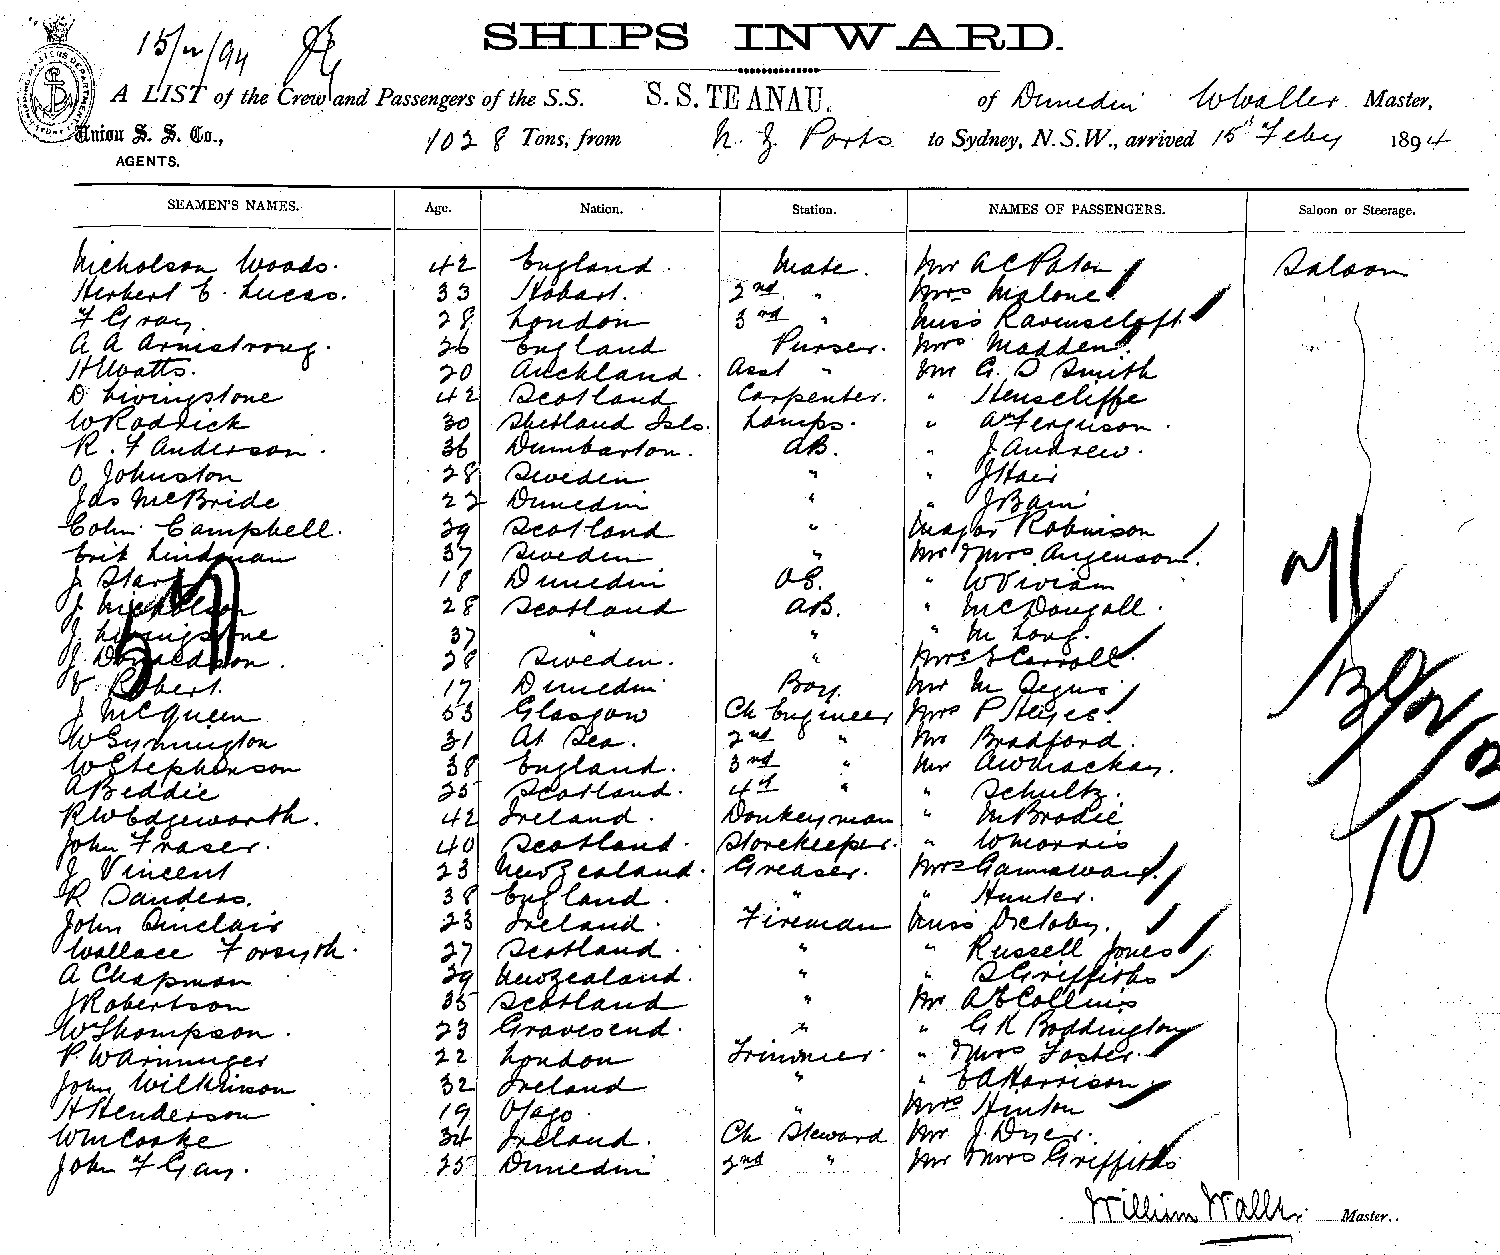 SHIPS INWARD.
15/2/94
A LIST of the Crew and Passengers of the S.S. S.S. TE ANAU. of Dunedin W Waller Master,
Union S. S. Co., AGENTS. 1028 Tons, from N. Z. Ports to Sydney, N.S.W., arrived 15th Feby 1894
SEAMEN'S NAMES. Age. Nation. Station. NAMES OF PASSENGERS. Saloon or Steerage.
Nicholson Woods. 42 England. Mate. Mr A C Paton Saloon
Herbert C. Lucas. 33 Hobart. 2nd " Mrs Malone
F Gray. 28 London 3rd " Miss Ravenscroft
A A Armstrong. 26 England Purser. Mrs Madden
H Watts. 20 Auckland. Asst " Mr G. S Smith
D Livingstone 42 Scotland Carpenter. " Henscliffe
W Roddick 30 Shetland Isls. Lamps. " A Ferguson.
R. F Anderson. 36 Dumbarton. AB. " J Andrew.
O Johnston 28 Sweden " " J Hair
Jas McBride 22 Dunedin " " J Bain
Colin Campbell. 29 Scotland " Major Robinson
Erik Lindman 37 Sweden " Mr & Mrs Argenson.
J Stark 18 Dunedin OS. " W Vivian
J Nicholson 28 Scotland AB. " McDougall.
J. Livingstone 37 " " " M Long.
J. Donaldson. 28 Sweden. " Mrs Carroll.
Robert. 17 Dunedin Boy. Mr M
J McQueen 53 Glasgow Ch Engineer Mrs P Hayes.
W Symington 31 At Sea. 2nd " Mr Bradford.
W Stephenson 38 England. 3rd " Mr A W Mackay.
A Beddie 25 Scotland. 4th " " Schultz.
R W Edgeworth. 42 Ireland. Donkeyman " M Brodie
John Fraser. 40 Scotland. Storekeeper. " W Morris
J Vincent 23 New Zealand. Greaser. Mrs
R Sanders. 38 England. " " Hunter.
John Sinclair 23 Ireland. Fireman Miss
Wallace Forsyth. 27 Scotland. " " Russell Jones
A Chapman 29 New Zealand. " " S Griffiths
J Robertson 35 Scotland " Mr A E Collins
W Thompson. 23 Gravesend. " " G R Boddington
P Warminger 22 London Trimmer. " & Mrs Foster.
John Wilkinson 32 Ireland " " E A Harrison
H Henderson 19 Otago. " Mrs Hinton
Wm Cooke 34 Ireland. Ch Steward Mr J. Dyer.
John F Gay. 25 Dunedin 2nd " Mr & Mrs Griffiths
57
71
William Waller Master.